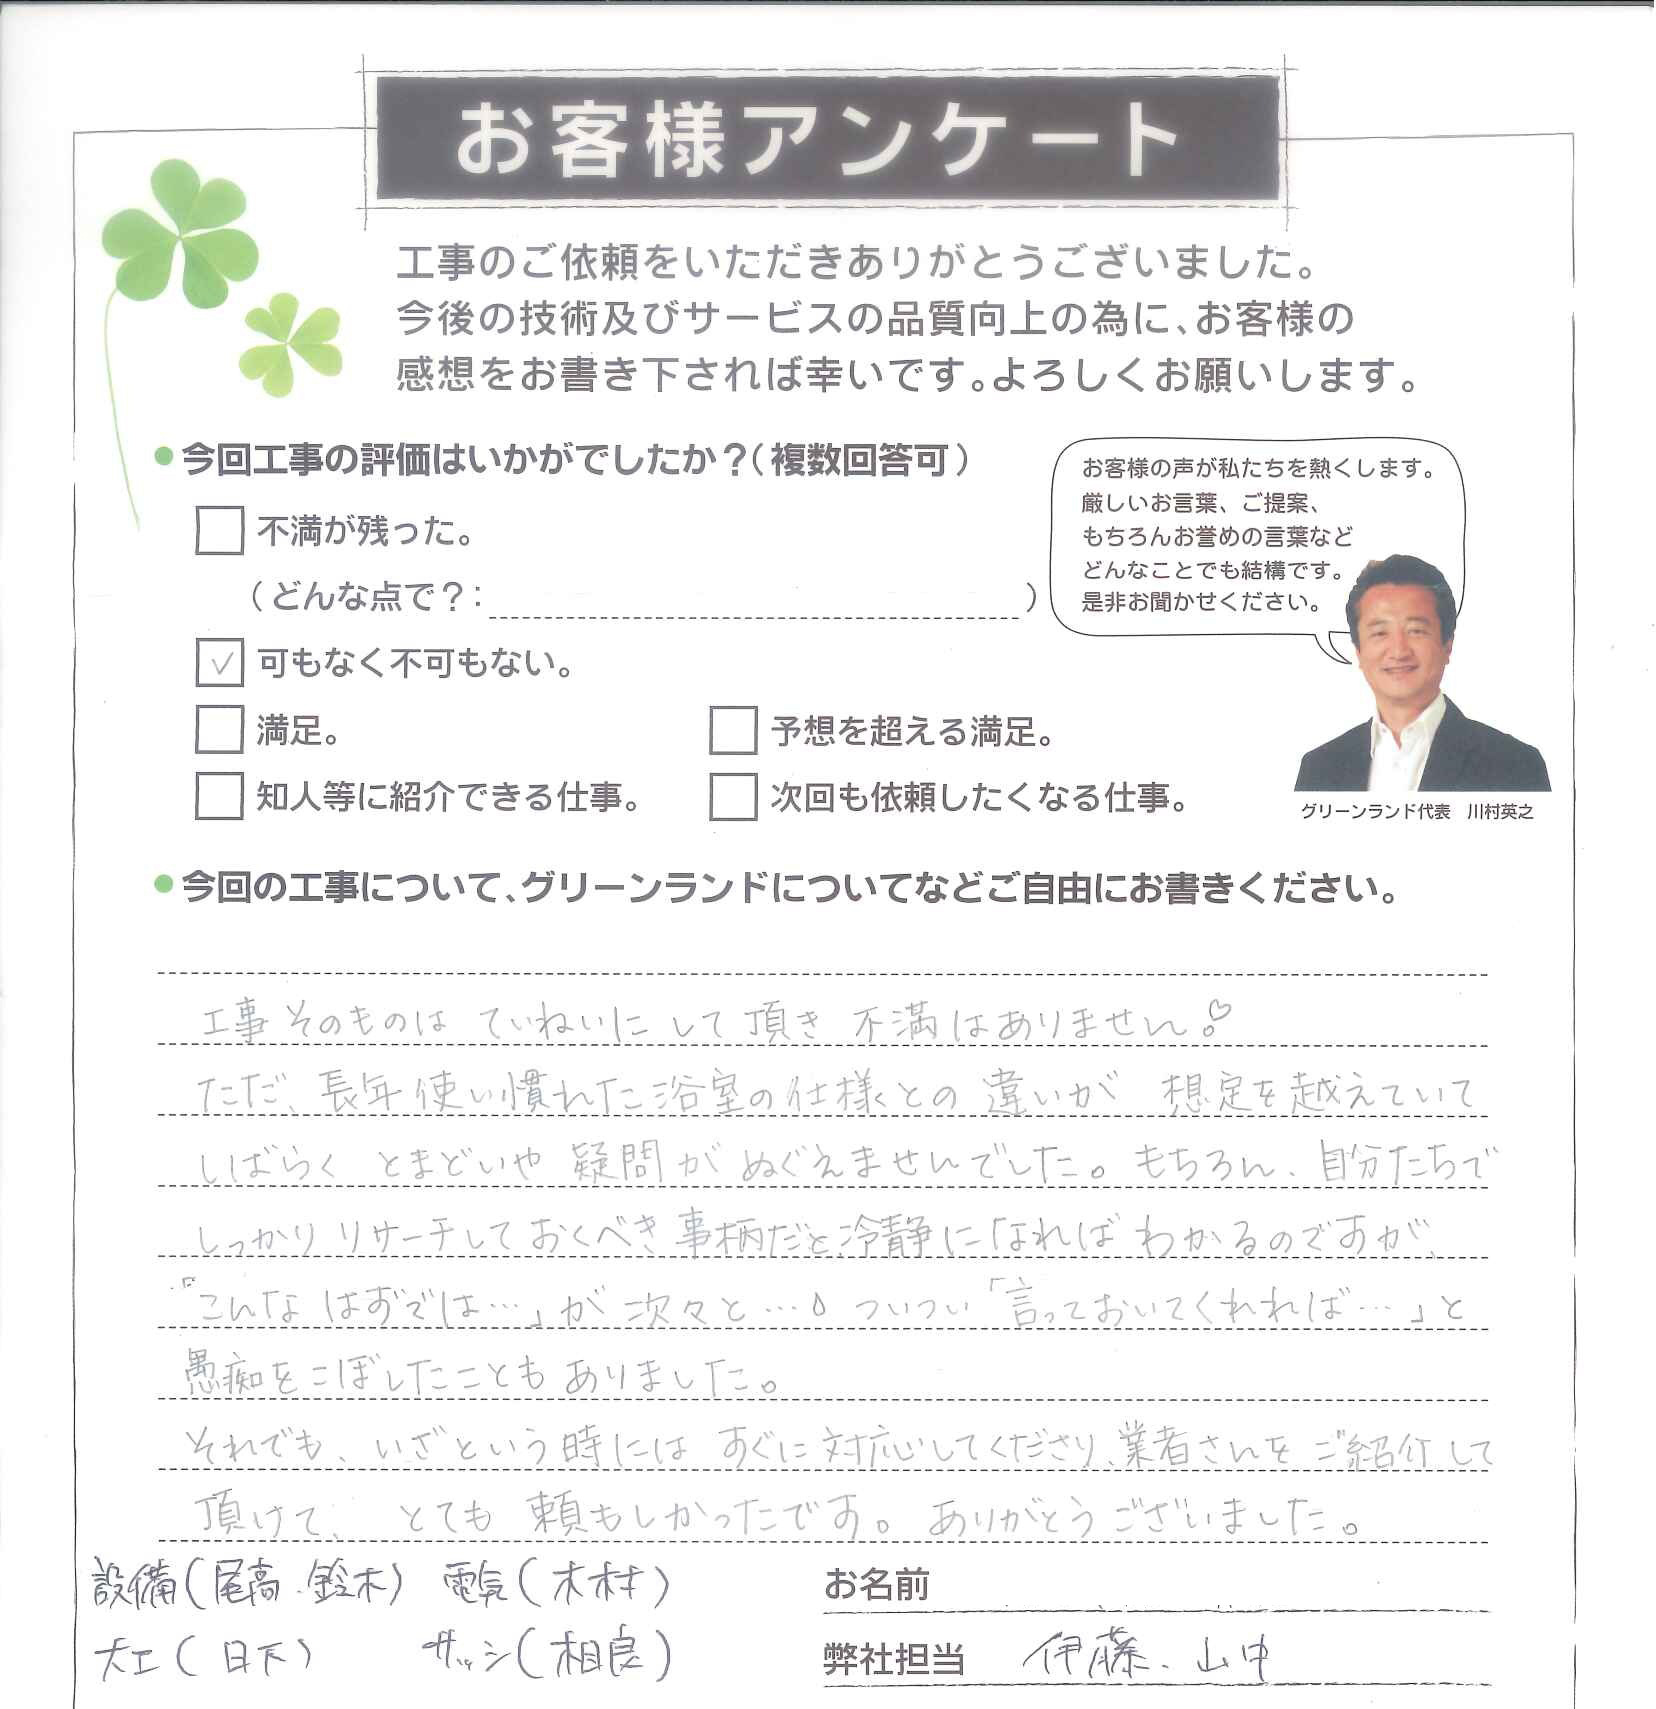 お客様アンケート
工事のご依頼をいただきありがとうございました。
今後の技術及びサービスの品質向上の為に、お客様の
感想をお書き下されば幸いです。よろしくお願いします。
●今回工事の評価はいかがでしたか?(複数回答可)
不満が残った。
(どんな点で?: )
✓ 可もなく不可もない。
満足。
予想を超える満足。
知人等に紹介できる仕事。
次回も依頼したくなる仕事。
お客様の声が私たちを熱くします。
厳しいお言葉、ご提案、
もちろんお誉めの言葉など
どんなことでも結構です。
是非お聞かせください。
グリーンランド代表 川村英之
●今回の工事について、グリーンランドについてなどご自由にお書きください。
工事そのものは ていねいにして頂き 不満はありません♡
ただ、長年使い慣れた浴室の仕様との違いが 想定を越えていて
しばらく とまどいや 疑問が ぬぐえませんでした。もちろん、自分たちで
しっかりリサーチしておくべき事柄だと冷静になればわかるのですが、
「こんな はずでは…」が 次々と… ついつい「言っておいてくれれば…」と
愚痴をこぼしたこともありました。
それでも、いざという時には すぐに対応してくださり、業者さんを ご紹介して
頂けて、 とても 頼もしかったです。ありがとうございました。
設備(尾高・鈴木) 電気(木村)
大工(日下) サッシ(相良)
お名前
弊社担当 伊藤、山中